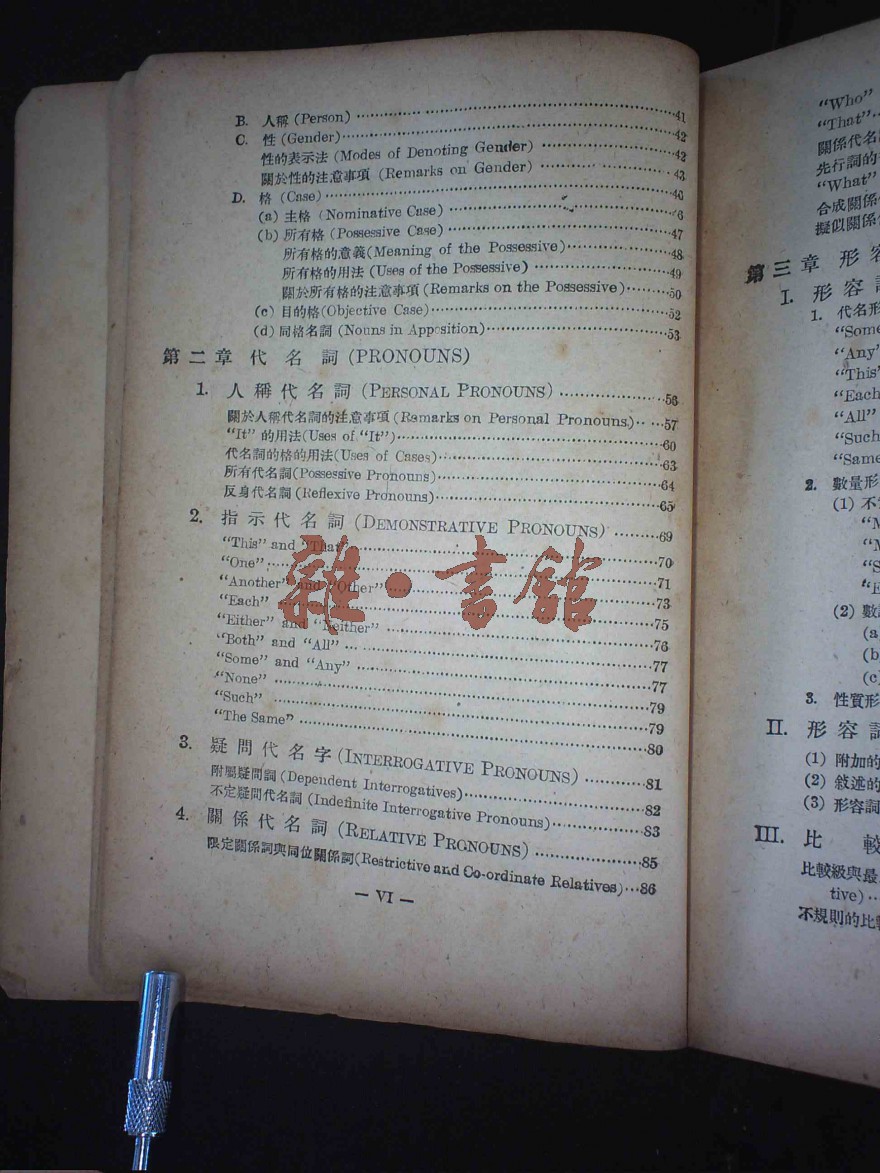 B. 人稱 (Person) ……41
C. 性 (Gender)……42
性的表示法 (Modes of Denoting Gender) ……42
關於性的注意事項 (Remarks on Gender) ……43
D. 格 (Case)……46
(a) 主格 (Nominative Case) ……6
(b) 所有格 (Possessive Case) ……47
所有格的意義(Meaning of the Possessive)……48
所有格的用法 (Uses of the Possessive) ……49
關於所有格的注意事項 (Remarks on the Possessive)……50
(c) 目的格(Objective Case)……52
(d) 同格名詞 (Nouns in Apposition)……53
第二章 代名詞 (PRONOUNS)
1. 人稱代名詞 (PERSONAL PRONOUNS) ……56
關於人稱代名詞的注意事項 (Remarks on Personal Pronouns)……57
“It” 的用法(Uses of “It”)……60
代名詞的格的用法(Uses of Cases)……63
所有代名詞(Possessive Pronouns)……64
反身代名詞 (Reflexive Pronouns)……65
2. 指示代名詞 (DEMONSTRATIVE PRONOUNS)……69
“This” and “That”……70
“One”……71
“Another” and “Other”……73
“Each” ……75
“Either” and “Neither” ……76
“Both” and “All” ……77
“Some” and “Any” ……77
“None” ……79
“Such” ……79
“The Same” ……80
3. 疑問代名字 (INTERROGATIVE PRONOUNS) ……81
附屬疑問詞 (Dependent Interrogatives)……82
不定疑問代名詞 (Indefinite Interrogative Pronouns)……83
4. 關係代名詞 (RELATIVE PRONOUNS) ……85
限定關係詞與同位關係詞(Restrictive and Co-ordinate Relatives)…86
— VI —
雜·書館
“Who”
“That”…
關係代名
先行詞的
“What”
合成關係
擬似關係
第三章 形容
I. 形容
1. 代名形
“Some
“Any
“This
“Each
“All”
“Such
“Same
2. 數量形
(1) 不
(2) 數
(a
(b
(c
3. 性質形
II. 形容
(1) 附加的
(2) 敘述的
(3) 形容詞
III. 比 較
比較級與最
tive)…
不規則的比